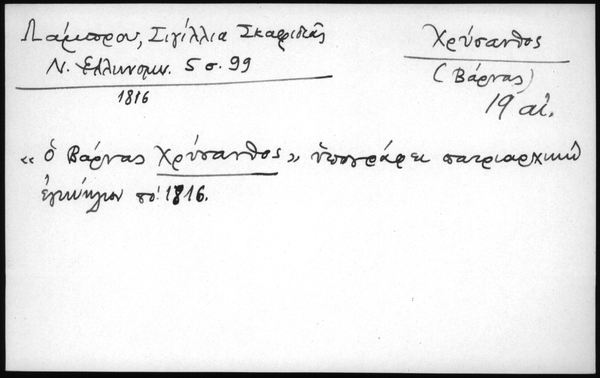 Λάμπρου, Σιγίλλια Σκαφιδιᾶς
Ν. Ἑλληνομν. 5 σ. 99
1816
Χρύσανθος
(Βάρνας)
19 αἰ.
«ὁ Βάρνας Χρύσανθος» ὑπογράφει πατριαρχικὸ
τοῦ 1816.